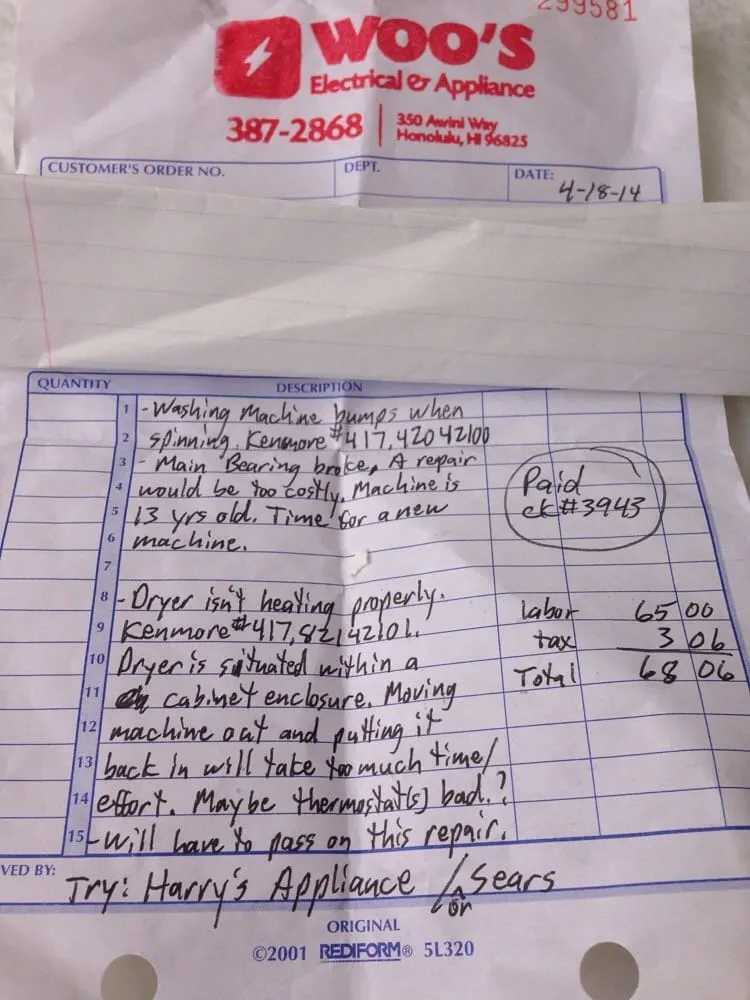 299581
WOO'S
Electrical & Appliance
387-2868
350 Awini Way
Honolulu, HI 96825
CUSTOMER'S ORDER NO.
DEPT.
DATE:
4-18-14
QUANTITY
DESCRIPTION
1 - Washing Machine bumps when
2 spinning. Kenmore #417.42042100
3 - Main Bearing broke, A repair
4 would be too costly. Machine is
5 13 yrs old. Time for a new
6 machine.
Paid
ck#3943
7
8 - Dryer isn't heating properly.
9 Kenmore #417.82142101.
10 Dryer is situated within a
11 cabinet enclosure. Moving
12 machine out and putting it
13 back in will take too much time/
14 effort. Maybe thermostat(s) bad.?
15 - Will have to pass on this repair.
labor 65 00
tax 3 06
Total 68 06
VED BY:
Try: Harry's Appliance / or Sears
ORIGINAL
©2001 REDIFORM® 5L320